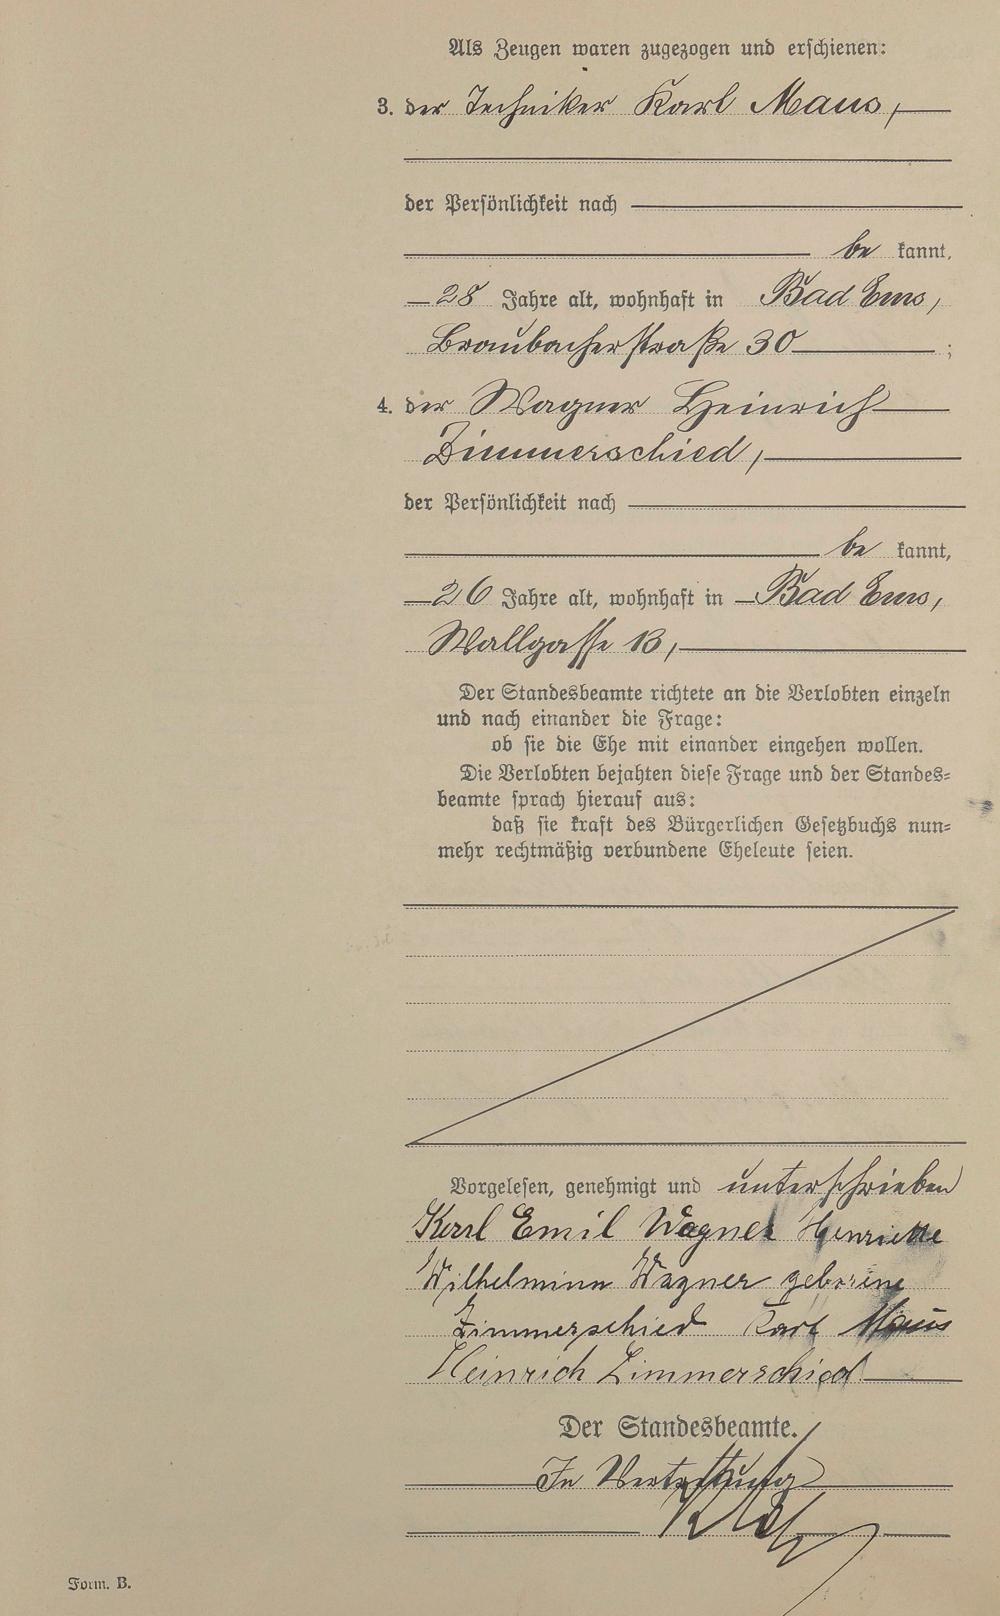 Als Zeugen waren zugezogen und erschienen:
3. der Techniker Karl Maus,
der Persönlichkeit nach
be kannt,
28 Jahre alt, wohnhaft in Bad Ems,
Braubacherstraße 30 ;
4. der Wagner Heinrich
Zimmerschied,
der Persönlichkeit nach
be kannt,
26 Jahre alt, wohnhaft in Bad Ems,
Wallgasse 13,
Der Standesbeamte richtete an die Verlobten einzeln
und nach einander die Frage:
ob sie die Ehe mit einander eingehen wollen.
Die Verlobten bejahten diese Frage und der Standes-
beamte sprach hierauf aus:
daß sie kraft des Bürgerlichen Gesetzbuchs nun-
mehr rechtmäßig verbundene Eheleute seien.
Vorgelesen, genehmigt und unterschrieben
Karl Emil Wagner Henriette
Wilhelmina Wagner geborene
Zimmerschied Karl Maus
Heinrich Zimmerschied
Der Standesbeamte.
In Vertretung
Form. B.